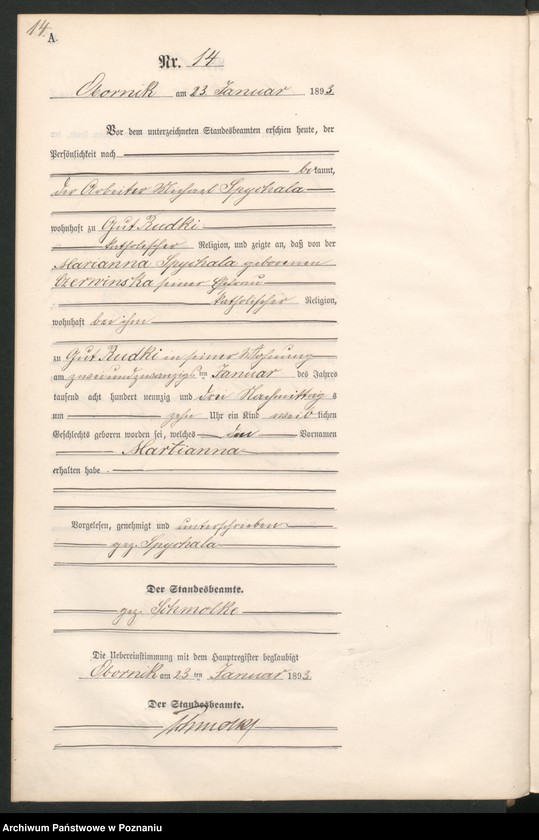 14.
A.
Nr. 14
Obornik am 23. Januar 1893.
Vor dem unterzeichneten Standesbeamten erschien heute, der
Persönlichkeit nach
bekannt,
der Arbeiter Michael Spychala
wohnhaft zu Gut Rudki
katholischer Religion, und zeigte an, daß von der
Marianna Spychala geborenen
Czerwinska seiner Ehefrau
katholischer Religion,
wohnhaft bei ihm
zu Gut Rudki in seiner Wohnung
am zweiundzwanzigsten Januar des Jahres
tausend acht hundert neunzig und drei Nachmittags
um zehn Uhr ein Kind weiblichen
Geschlechts geboren worden sei, welches den Vornamen
Martianna
erhalten habe.
Vorgelesen, genehmigt und unterschrieben
gez. Spychala
Der Standesbeamte.
gez. Schmolke
Die Uebereinstimmung mit dem Hauptregister beglaubigt
Obornik am 23 ten Januar 1893.
Der Standesbeamte.
Schmolke
Archiwum Państwowe w Poznaniu